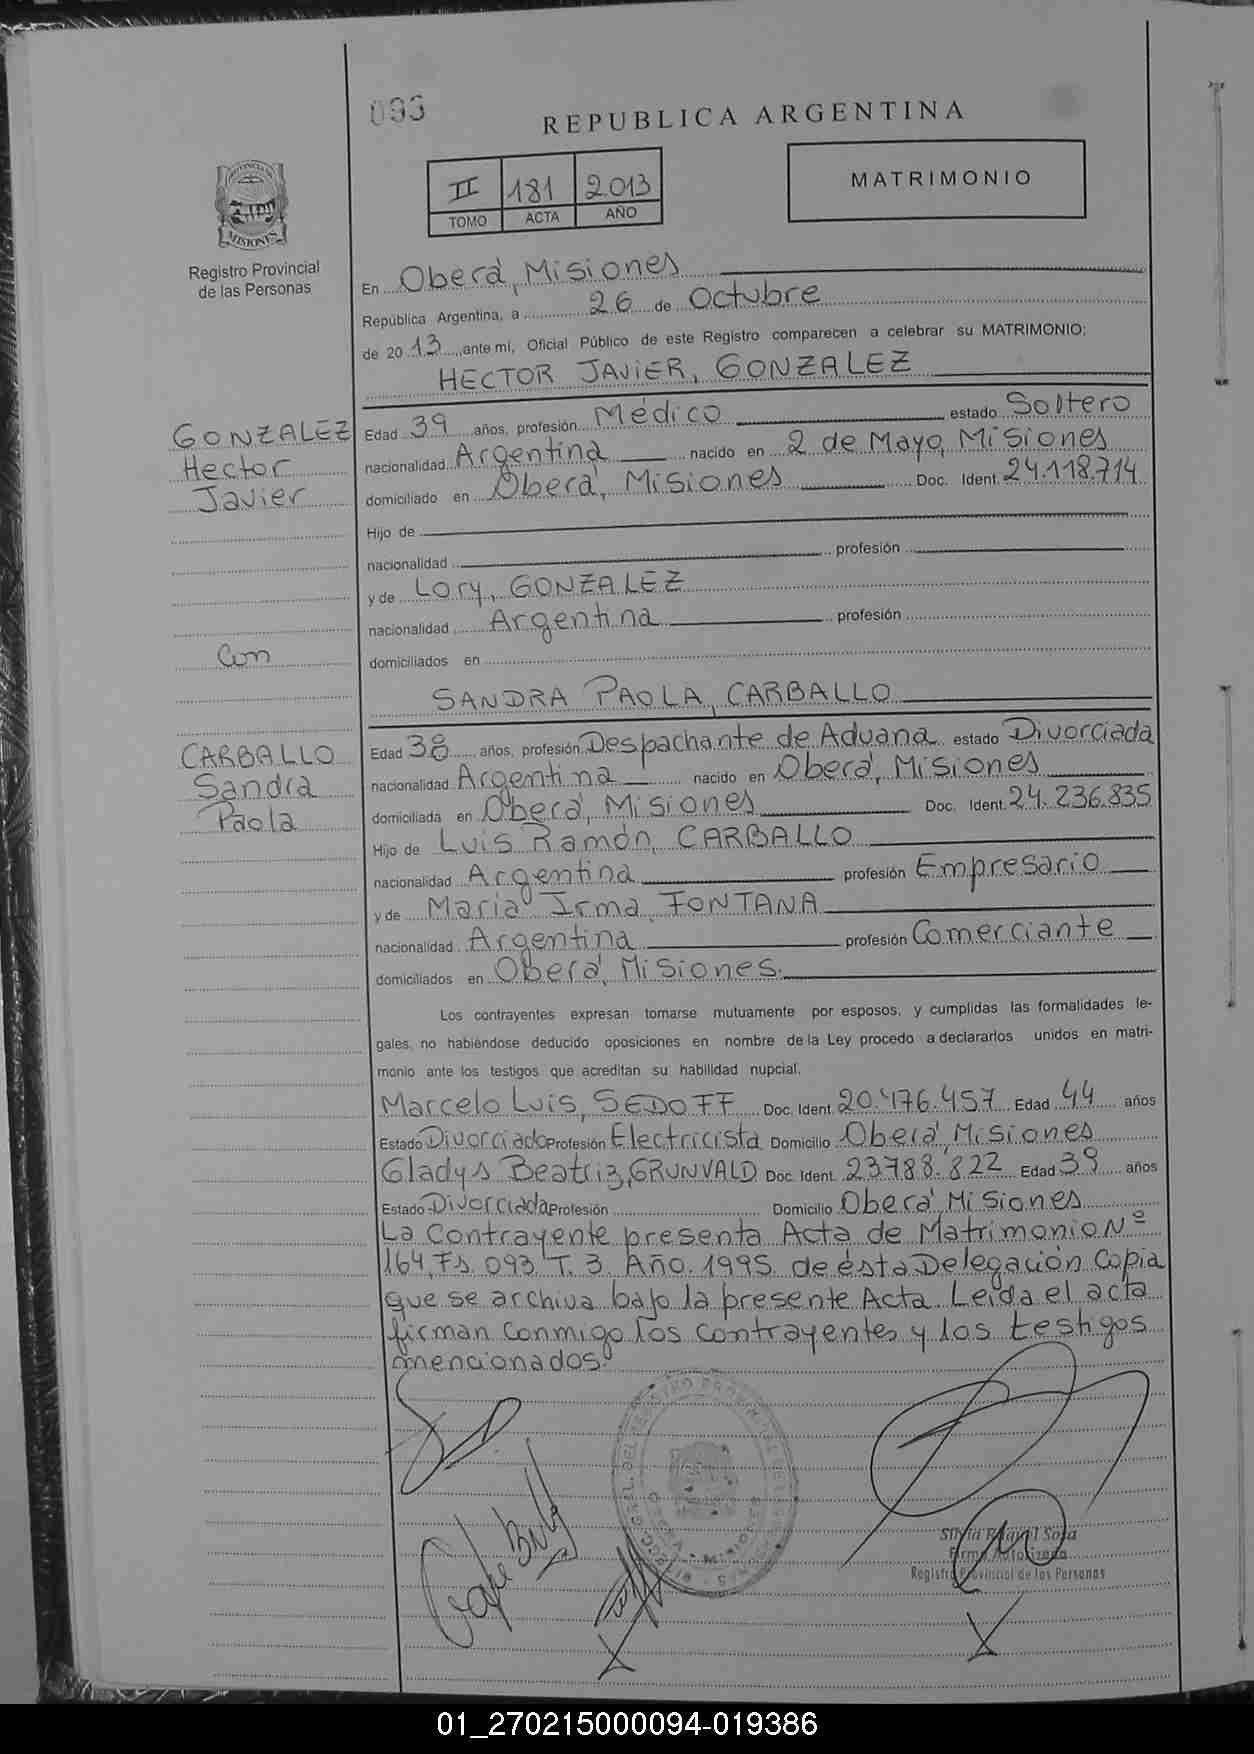 093
REPUBLICA ARGENTINA
II 181 2013
TOMO ACTA AÑO
MATRIMONIO
MISIONES
Registro Provincial
de las Personas
En Oberá, Misiones
República Argentina, a 26 de Octubre
de 20 13, ante mí, Oficial Público de este Registro comparecen a celebrar su MATRIMONIO:
HECTOR JAVIER, GONZALEZ
GONZALEZ
Hector
Javier
Edad 39 años, profesión Médico estado Soltero
nacionalidad Argentina nacido en 2 de Mayo, Misiones
domiciliado en Oberá, Misiones Doc. Ident. 24.118.714
Hijo de
nacionalidad profesión
y de Lory, GONZALEZ
nacionalidad Argentina profesión
Con
domiciliados en
SANDRA PAOLA, CARBALLO
CARBALLO
Sandra
Paola
Edad 38 años, profesión Despachante de Aduana estado Divorciada
nacionalidad Argentina nacido en Oberá, Misiones
domiciliada en Oberá, Misiones Doc. Ident. 24.236.835
Hijo de Luis Ramón, CARBALLO
nacionalidad Argentina profesión Empresario
y de María Irma, FONTANA
nacionalidad Argentina profesión Comerciante
domiciliados en Oberá, Misiones.
Los contrayentes expresan tomarse mutuamente por esposos, y cumplidas las formalidades le-
gales, no habiéndose deducido oposiciones en nombre de la Ley procedo a declararlos unidos en matri-
monio ante los testigos que acreditan su habilidad nupcial.
Marcelo Luis, SEDOFF Doc. Ident. 20.476.457 Edad 44 años
Estado Divorciado Profesión Electricista Domicilio Oberá, Misiones
Gladys Beatriz, GRUNVALD Doc. Ident. 23.788.822 Edad 39 años
Estado Divorciada Profesión Domicilio Oberá, Misiones
La Contrayente presenta Acta de Matrimonio Nº
164, Fs. 093 T. 3 Año. 1995 de ésta Delegación Copia
que se archiva bajo la presente Acta. Leída el acta
firman conmigo los contrayentes y los testigos
mencionados.
Silvia Raquel Sosa
Firma Autorizada
Registro Provincial de las Personas
01_270215000094-019386